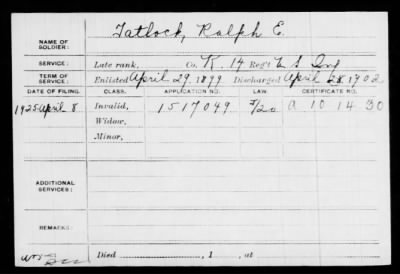 NAME OF SOLDIER: Tatlock, Ralph E.
SERVICE: Late rank, Co. K. 14 Reg't U S Inf
TERM OF SERVICE: Enlisted April 29, 1899 Discharged April 28, 1902
DATE OF FILING. CLASS. APPLICATION NO. LAW. CERTIFICATE NO.
1925 April 8 Invalid, 1517049 a 10 14 30
Widow,
Minor,
ADDITIONAL SERVICES:
REMARKS:
Died , 1 , at